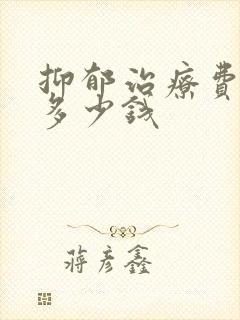 抑郁治療費
多少錢
蔣彥鑫